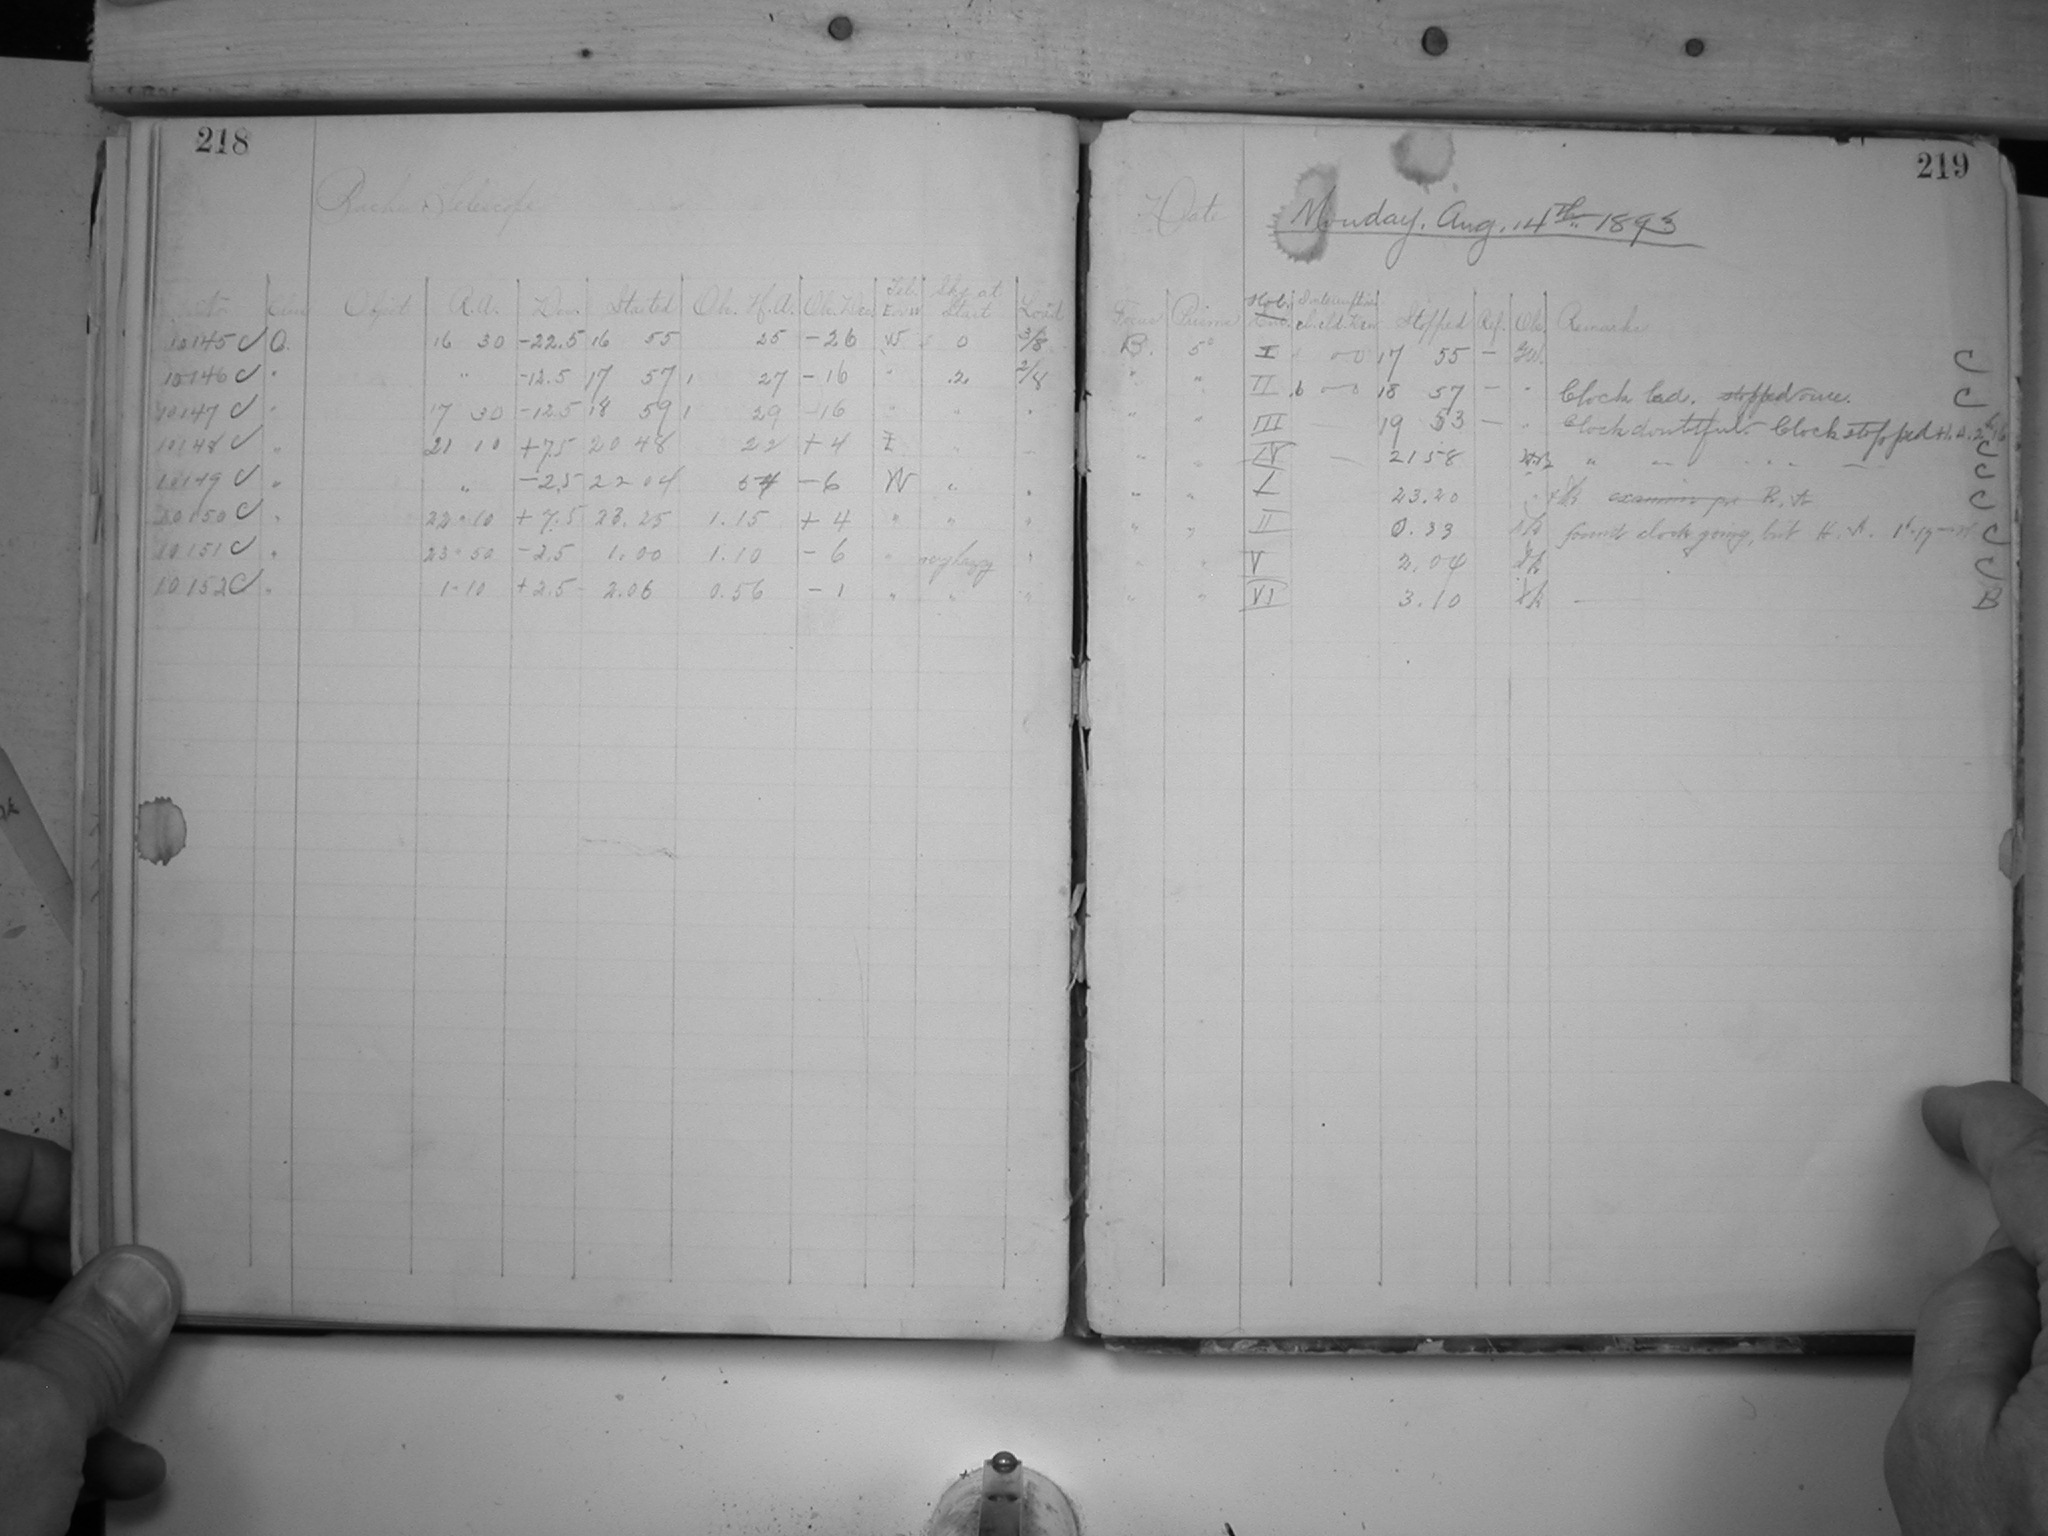 218
Bache Telescope
No. Class Object R.A. Dec. Started Ob. H.A. Ob. Dec. Tel. E or W Sky at Start Load
10145 C C. 16 30 -22.5 16 55 25 -26 W 0 3/8
10146 C " " -12.5 17 57 1 27 -16 " .2. 2/8
10147 C " 17 30 -12.5 18 59 1 29 -16 " " "
10148 C " 21 10 +7.5 20 48 22 +4 E "
10149 C " " -2.5 22 04 54 -6 W " "
10150 C " 22 10 +7.5 23.25 1.15 +4 " " "
10151 C " 23 50 -2.5 1.00 1.10 -6 " very hazy "
10152 C " 1 10 +2.5 2.06 0.56 -1 " " "
219
Date Monday. Aug. 14th 1893
Focus Prisms Stopped Ref. Ob. Remarks
B. 5° I 17 55 - C
" " II 18 57 - " Clock bad. stopped once. C
" " III 19 53 - " Clock doubtful. Clock stopped H.A. C
" " IV 21 58 " C
" " V 23.20 R.A. C
" " II 0.33 found clock going, but H.A. C
" " V 2.04 C
" " VI 3.10 B